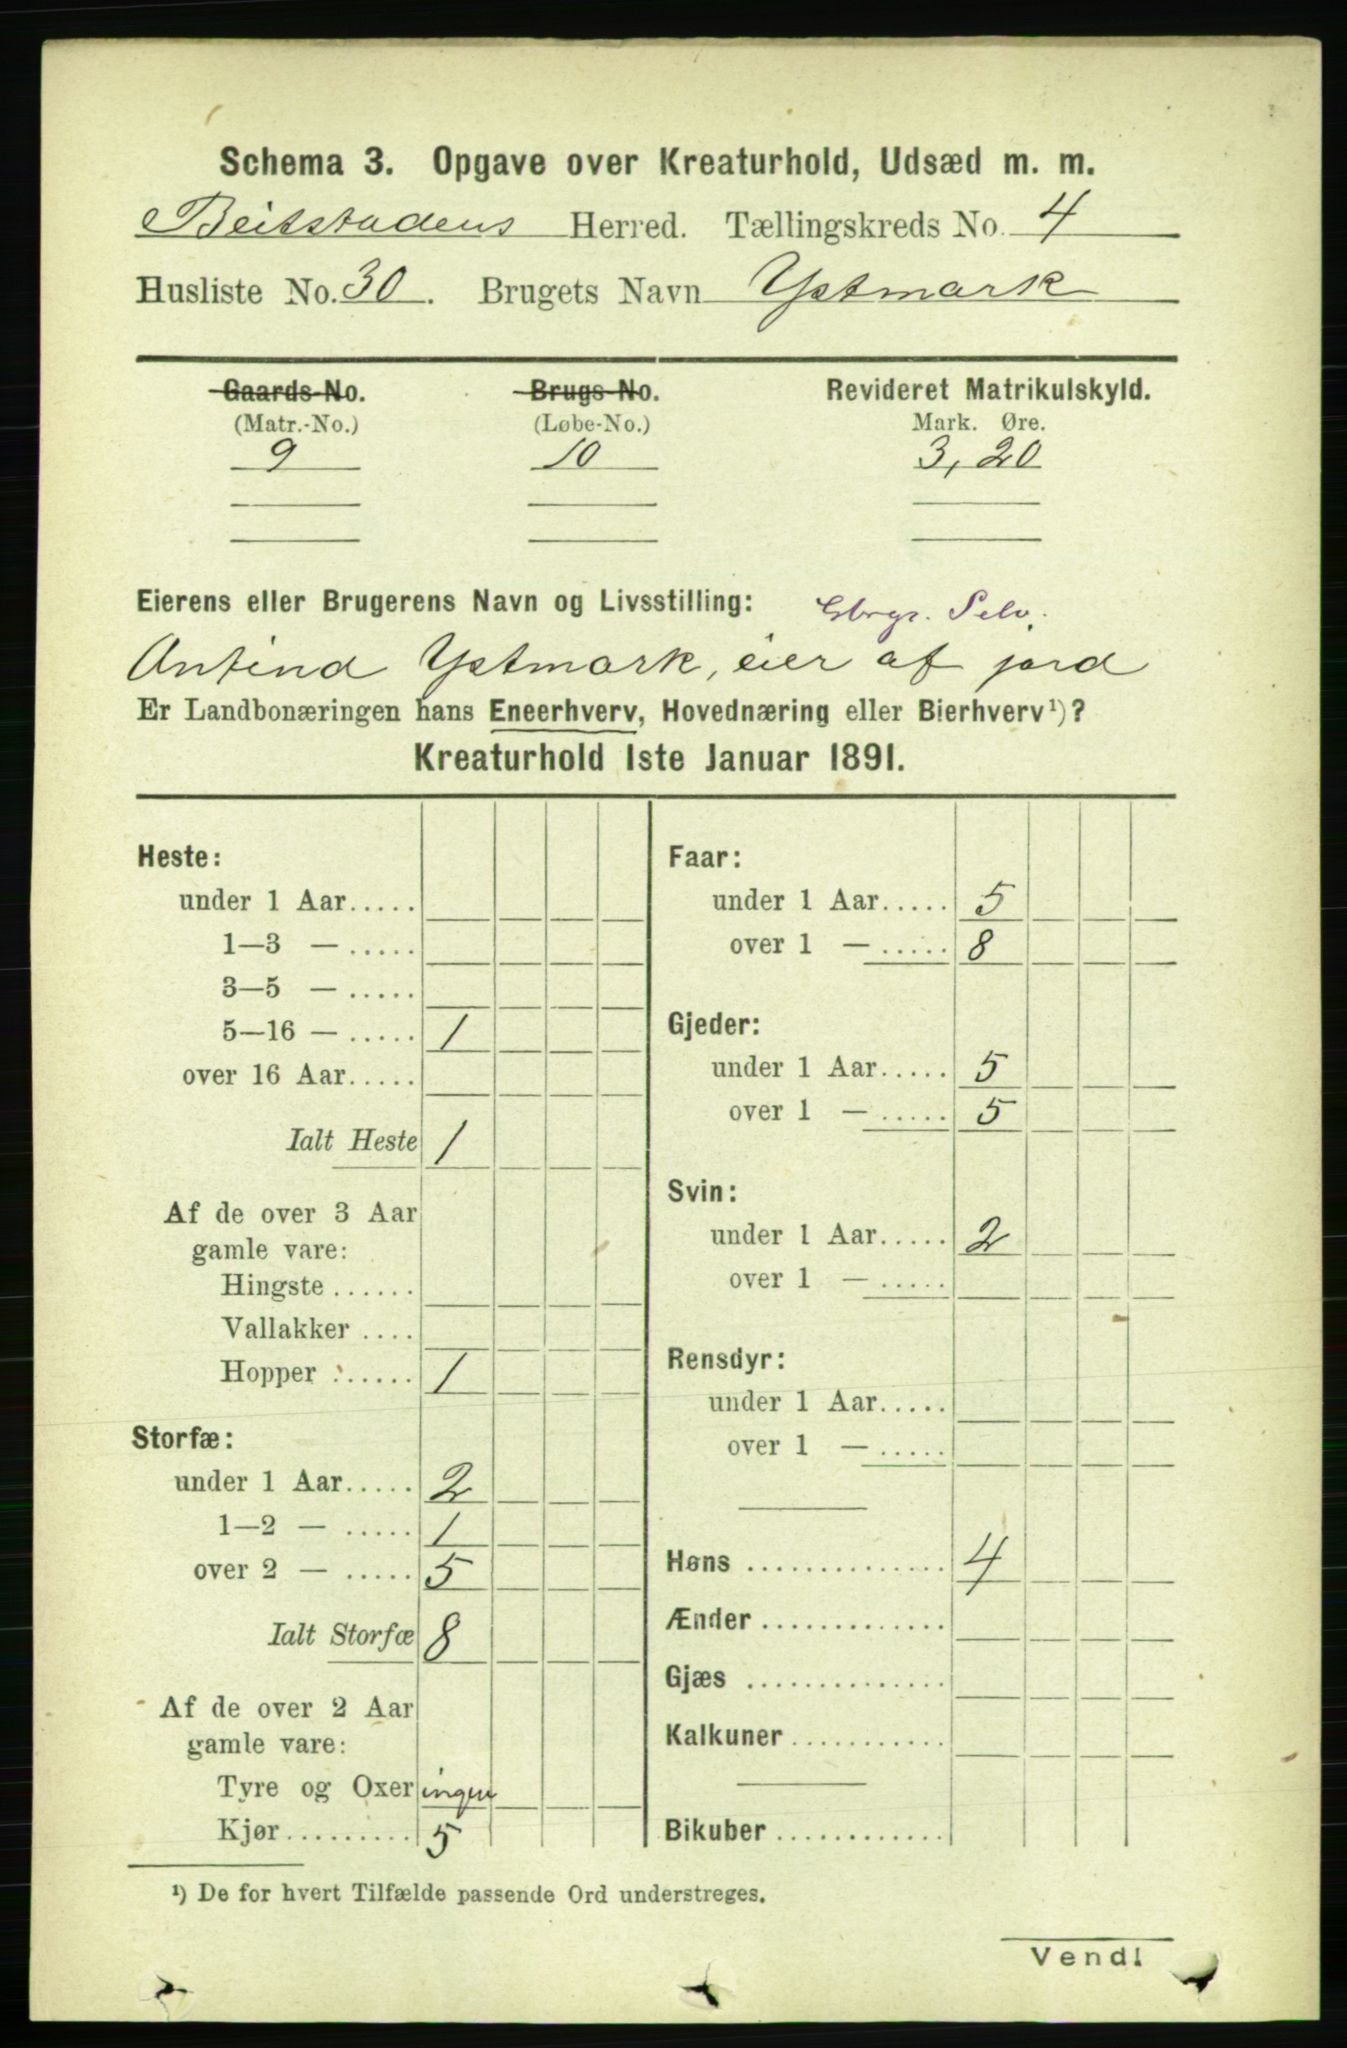 Schema 3. Opgave over Kreaturhold, Udsæd m. m.
Beitstadens Herred. Tællingskreds No. 4
Husliste No. 30. Brugets Navn Ystmark
Gaards-No. Brugs-No. Revideret Matrikulskyld.
(Matr.-No.) (Løbe-No.) Mark. Øre.
9 10 3,20
Eierens eller Brugerens Navn og Livsstilling: Selv.
Antind Ystmark, eier af jord
Er Landbonæringen hans Eneerhverv, Hovednæring eller Bierhverv¹)?
Kreaturhold 1ste Januar 1891.
Heste:
under 1 Aar.....
1—3 — .....
3—5 — .....
5—16 — ..... 1
over 16 Aar.....
Ialt Heste 1
Af de over 3 Aar
gamle vare:
Hingste ......
Vallakker ....
Hopper ...... 1
Storfæ:
under 1 Aar..... 2
1—2 — ..... 1
over 2 — ..... 5
Ialt Storfæ 8
Af de over 2 Aar
gamle vare:
Tyre og Oxer ingen
Kjør.......... 5
Faar:
under 1 Aar..... 5
over 1 — ..... 8
Gjeder:
under 1 Aar..... 5
over 1 — ..... 5
Svin:
under 1 Aar..... 2
over 1 — .....
Rensdyr:
under 1 Aar.....
over 1 — .....
Høns .............. 4
Ænder .............
Gjæs ..............
Kalkuner...........
Bikuber ............
¹) De for hvert Tilfælde passende Ord understreges.
Vend!